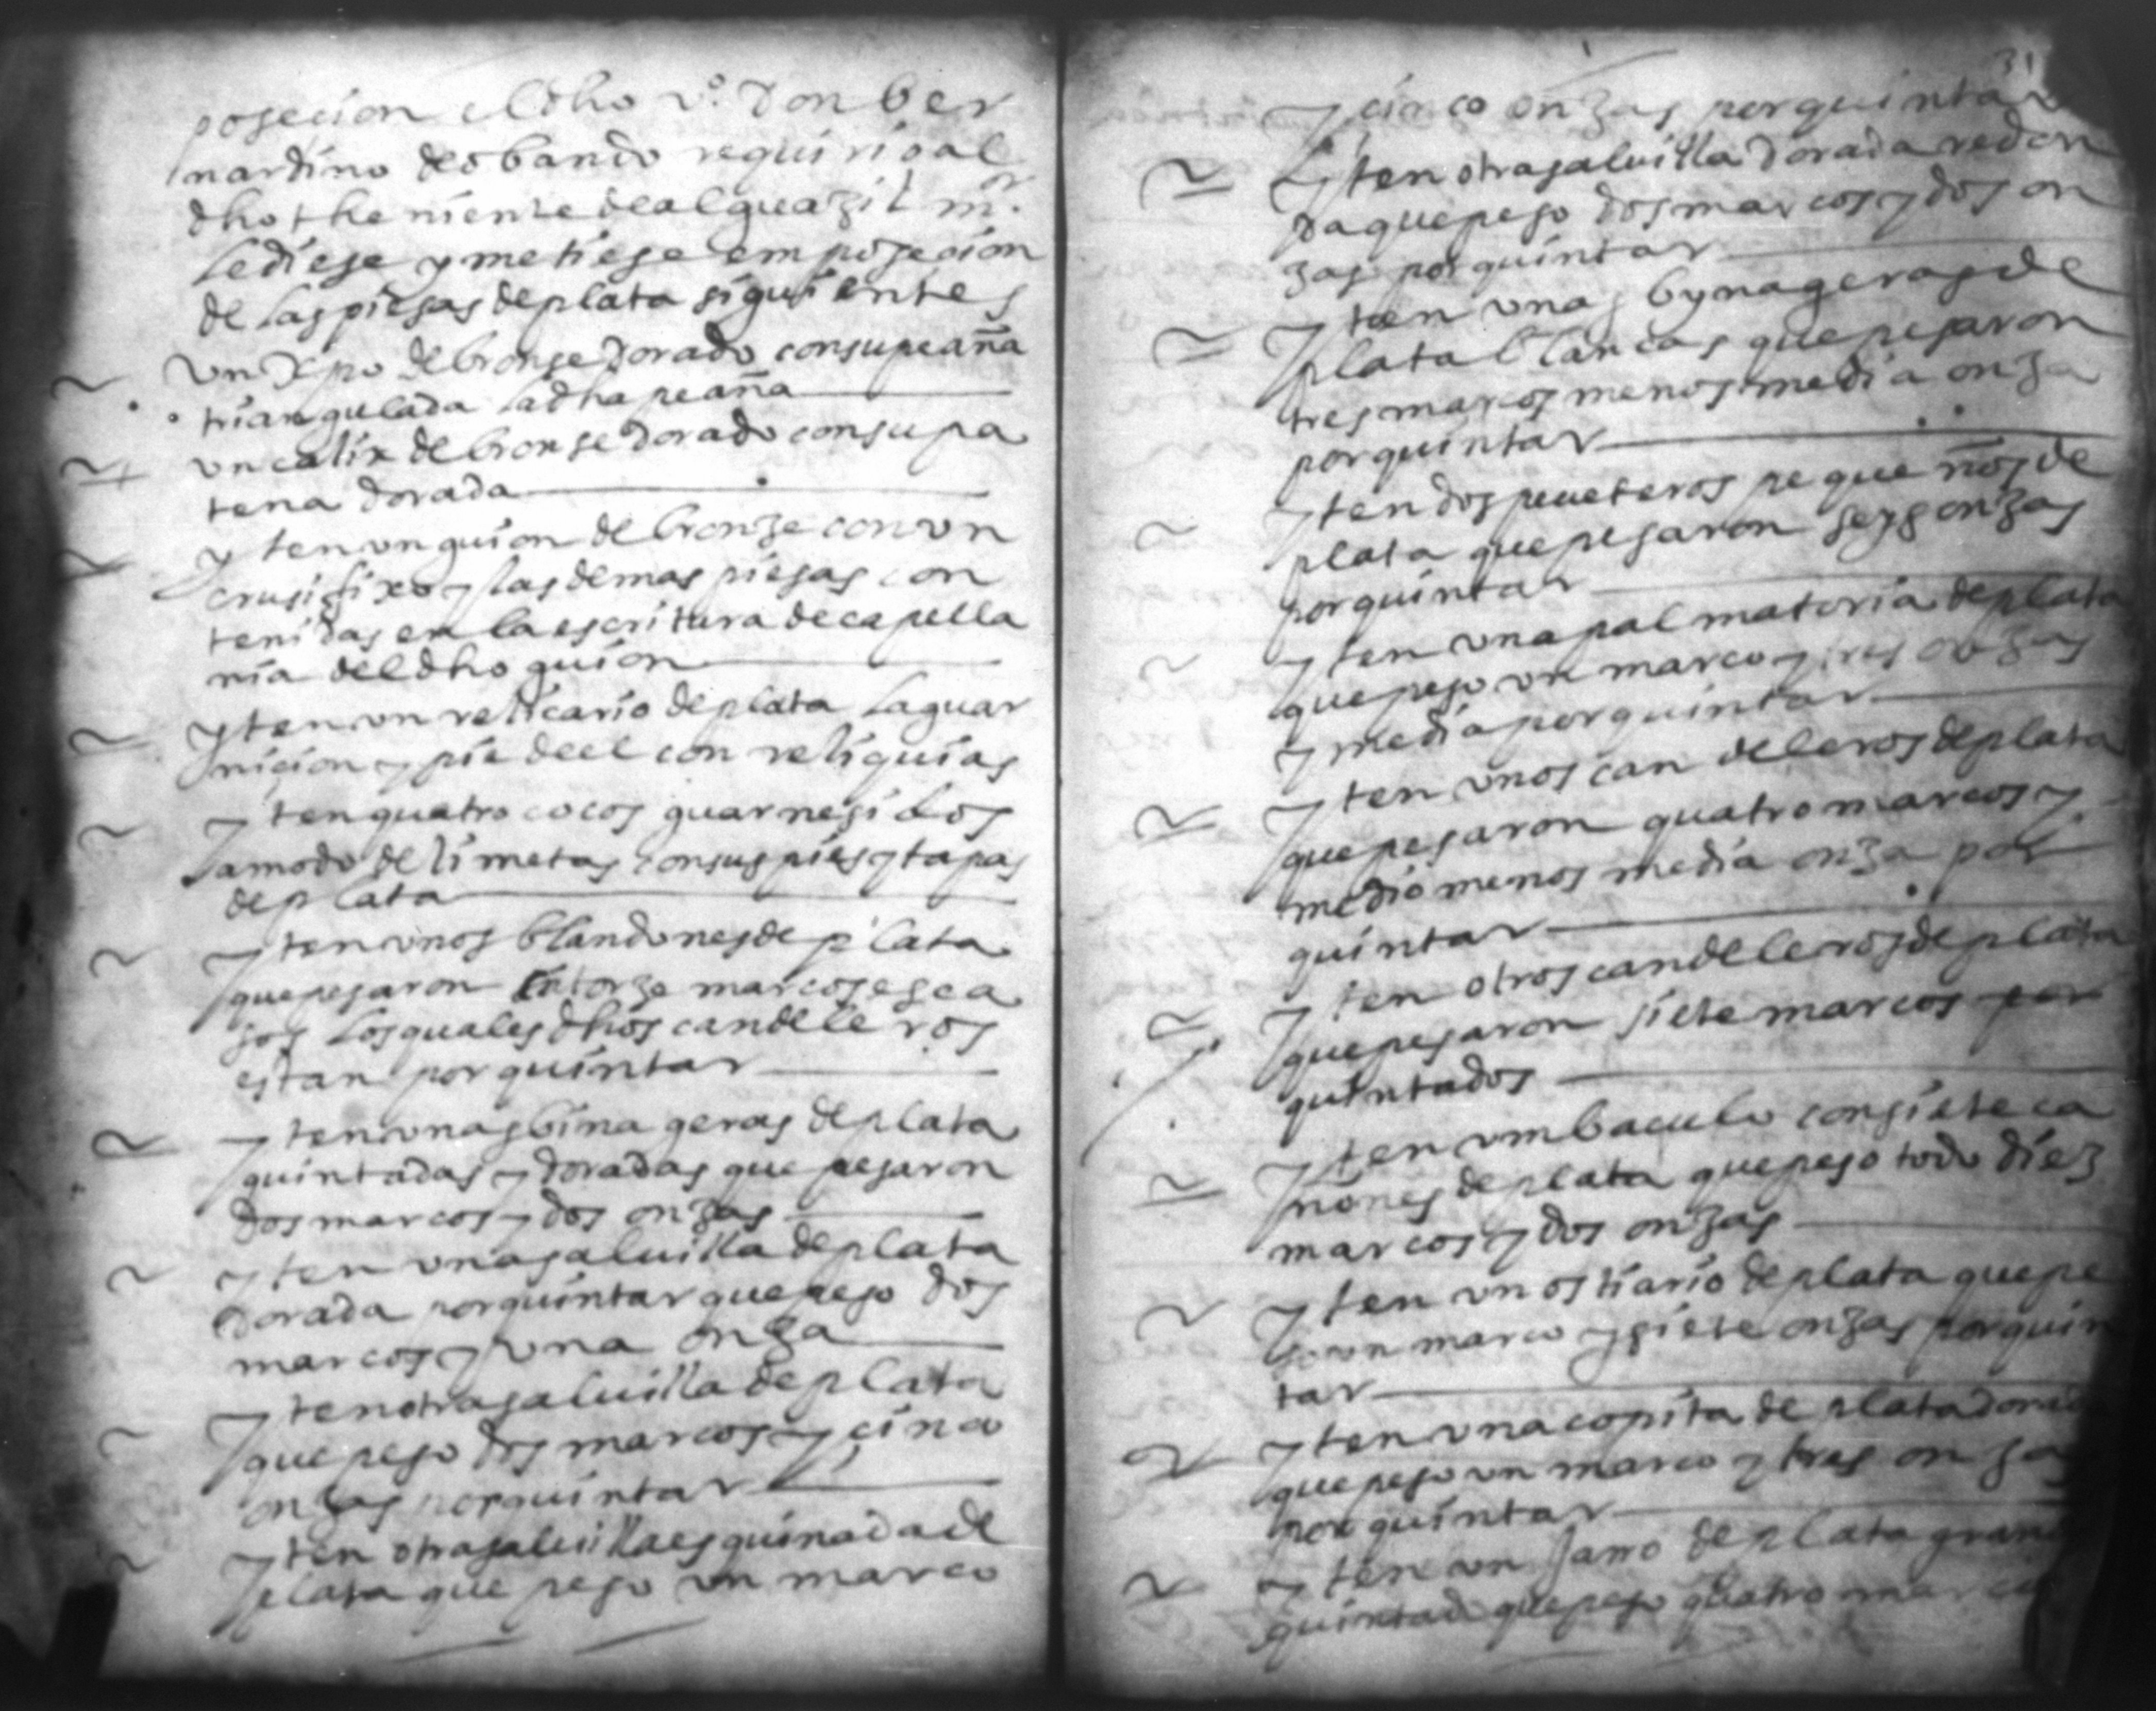 posecion el dho rº. don ber
nardino de obando requirio al
dho theniente de alguazil mor.
le diese y metiese em posecion
de las piesas de plata siguientes
un xpo de bronse dorado con su peaña
triangulada la dha peaña
un calix de bronse dorado con su pa
tena dorada
yten un guion de bronze con un
crusifixo y las demas piesas con
tenidas en la escritura de capella
nia del dho guion
yten un relicario de plata la guar
nicion y pie de el con reliquias
yten quatro cocos guarnesidos
a modo de limetas con sus pies y tapas
de plata
yten unos blandones de plata
que pesaron catorze marcos esca
sos los quales dhos candeleros
estan por quintar
yten unas binageras de plata
quintadas y doradas que pesaron
dos marcos y dos onzas
yten una saluilla de plata
dorada por quintar que peso dos
marcos y una onza
yten otra saluilla de plata
que peso dos marcos y cinco
onzas por quintar
yten otra saluilla esquinada de
plata que peso un marco
31
y cinco onzas por quintar
yten otra saluilla dorada redon
da que peso dos marcos y dos on
zas por quintar
yten unas bynageras de
plata blancas que pesaron
tres marcos menos media onza
por quintar
yten dos peueteros pequeños de
plata que pesaron seys onzas
por quintar
yten una palmatoria de plata
que peso un marco y tres onzas
y media por quintar
yten unos candeleros de plata
que pesaron quatro marcos y
medio menos media onza por
quintar
yten otros candeleros de plata
que pesaron siete marcos por
quintados
yten um baculo con siete ca
ñones de plata que peso todo diez
marcos y dos onzas
yten un ostiario de plata que pe
so un marco y siete onzas por quin
tar
yten una copita de plata dorada
que peso un marco y tres onzas
por quintar
yten un jarro de plata grande
quintado que peso quatro marcos